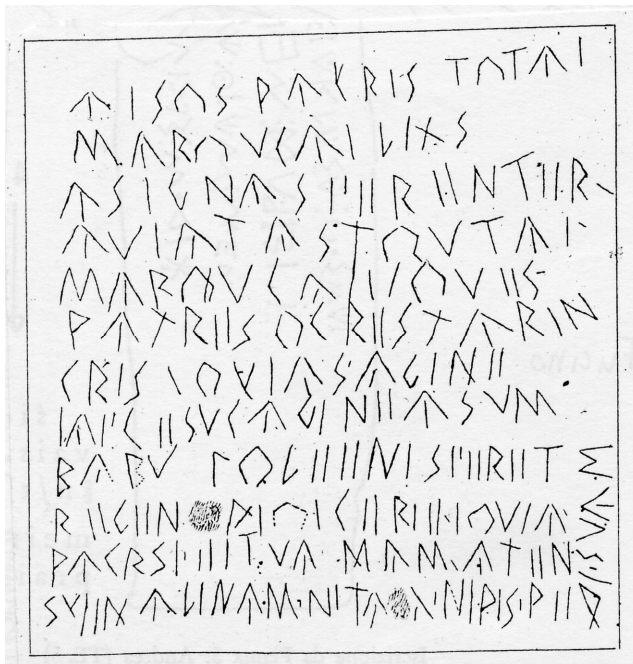 AISOS PACRIS TOTAI
MAROUCAI LIXS
ASIGNAS FERENTER
AUIATAS TOUTAI
MAROUCAI IOUES
PATRES OCRES TARIN
CRIS IOUIAS AGINE
IAFC ESUC AGINE ASUM
BABU POLEENIS FERET
REGEN PIOI CERIE IOUIA
PACRSI EITUAM AMATEN
SUENALINAM NITA A NIPIS PED
I SUAM